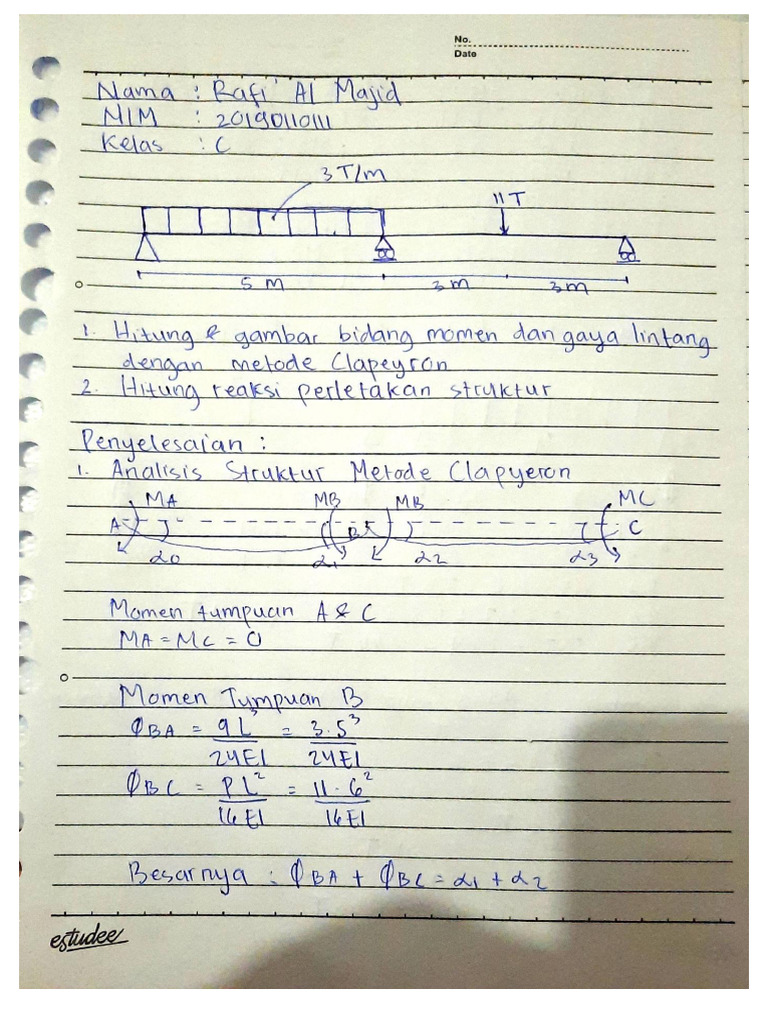 No.
Date
Nama : Rafi Al Majid
NIM : 2019011011
Kelas : C
3 T/m
11 T
5 M
3 m
3 m
1. Hitung & gambar bidang momen dan gaya lintang
dengan metode Clapeyron
2. Hitung reaksi perletakan struktur
Penyelesaian :
1. Analisis Struktur Metode Clapyeron
MA MB MB MC
A B C
α0 α1 α2 α3
Momen tumpuan A & C
MA = MC = 0
Momen Tumpuan B
ØBA = qL³/24EI = 3.5³/24EI
ØBC = PL²/16EI = 11.6²/16EI
Besarnya : ØBA + ØBC = α1 + α2
estudee